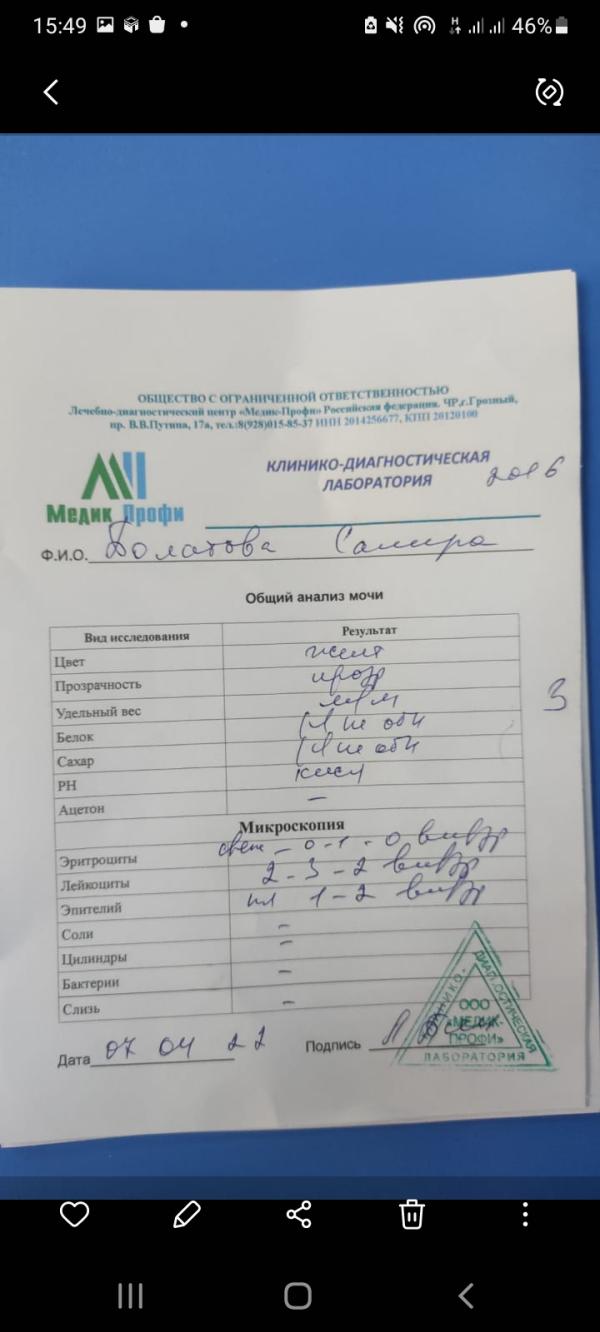 15:49 46%
ОБЩЕСТВО С ОГРАНИЧЕННОЙ ОТВЕТСТВЕННОСТЬЮ
Лечебно-диагностический центр «Медик-Профи» Российская федерация. ЧР,г.Грозный,
пр. В.В.Путина, 17а, тел.:8(928)015-85-37 ИНН 2014256677, КПП 20120100
КЛИНИКО-ДИАГНОСТИЧЕСКАЯ
ЛАБОРАТОРИЯ 2016
Медик Профи
Ф.И.О. Болатова Самира
Общий анализ мочи
Вид исследования Результат
Цвет желт
Прозрачность прозр
Удельный вес м/м
Белок не обн
Сахар не обн
РН кисл
Ацетон –
Микроскопия
Эритроциты 0-1-0 в п/зр
Лейкоциты 2-3-2 в п/зр
Эпителий пл 1-2 в п/зр
Соли –
Цилиндры –
Бактерии –
Слизь –
3
Дата 07 04 22 Подпись
КЛИНИКО-ДИАГНОСТИЧЕСКАЯ
ООО
«МЕДИК-
ПРОФИ»
ЛАБОРАТОРИЯ